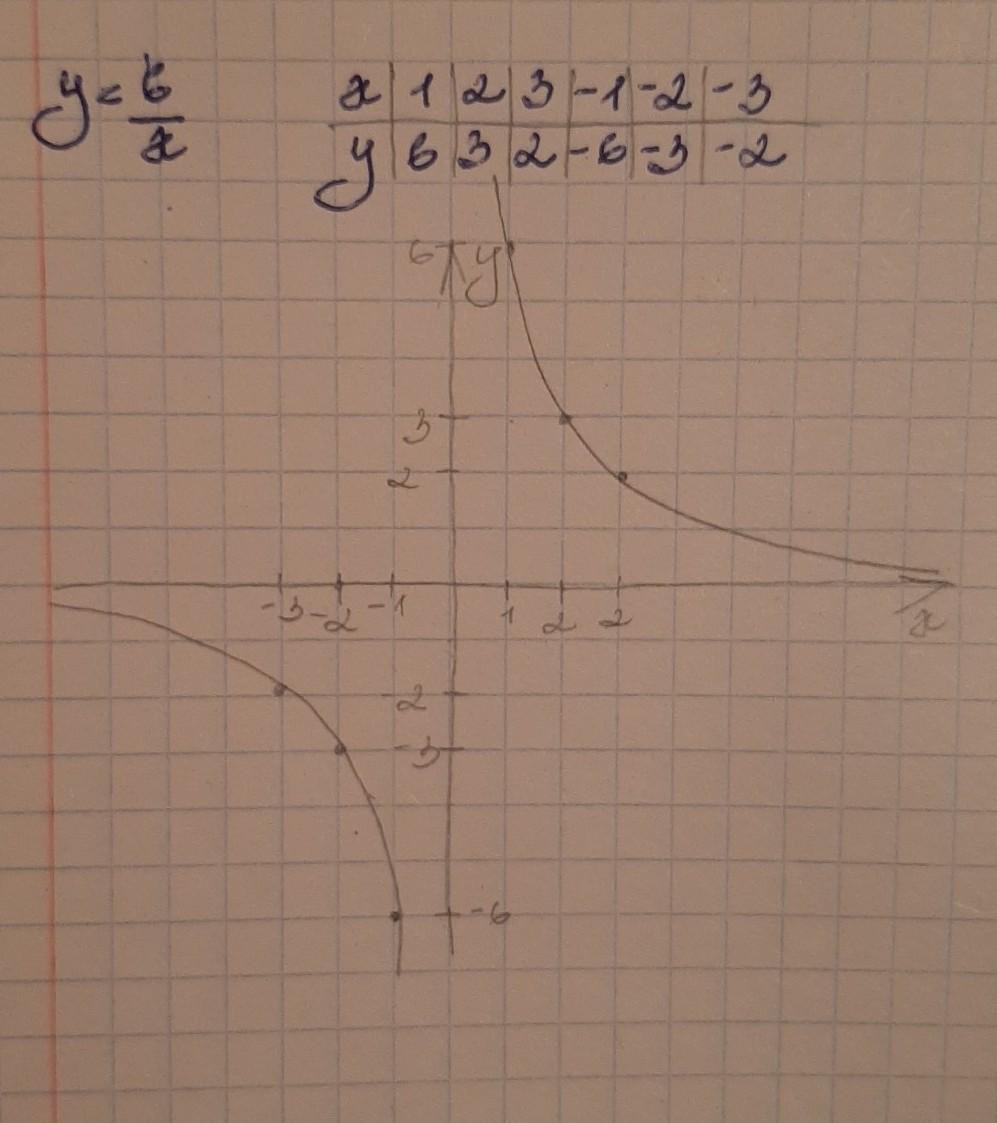 y = 6/x
x | 1 | 2 | 3 | -1 | -2 | -3
y | 6 | 3 | 2 | -6 | -3 | -2
6 y
3
2
-3 -2 -1 1 2 2 x
-2
-3
-6